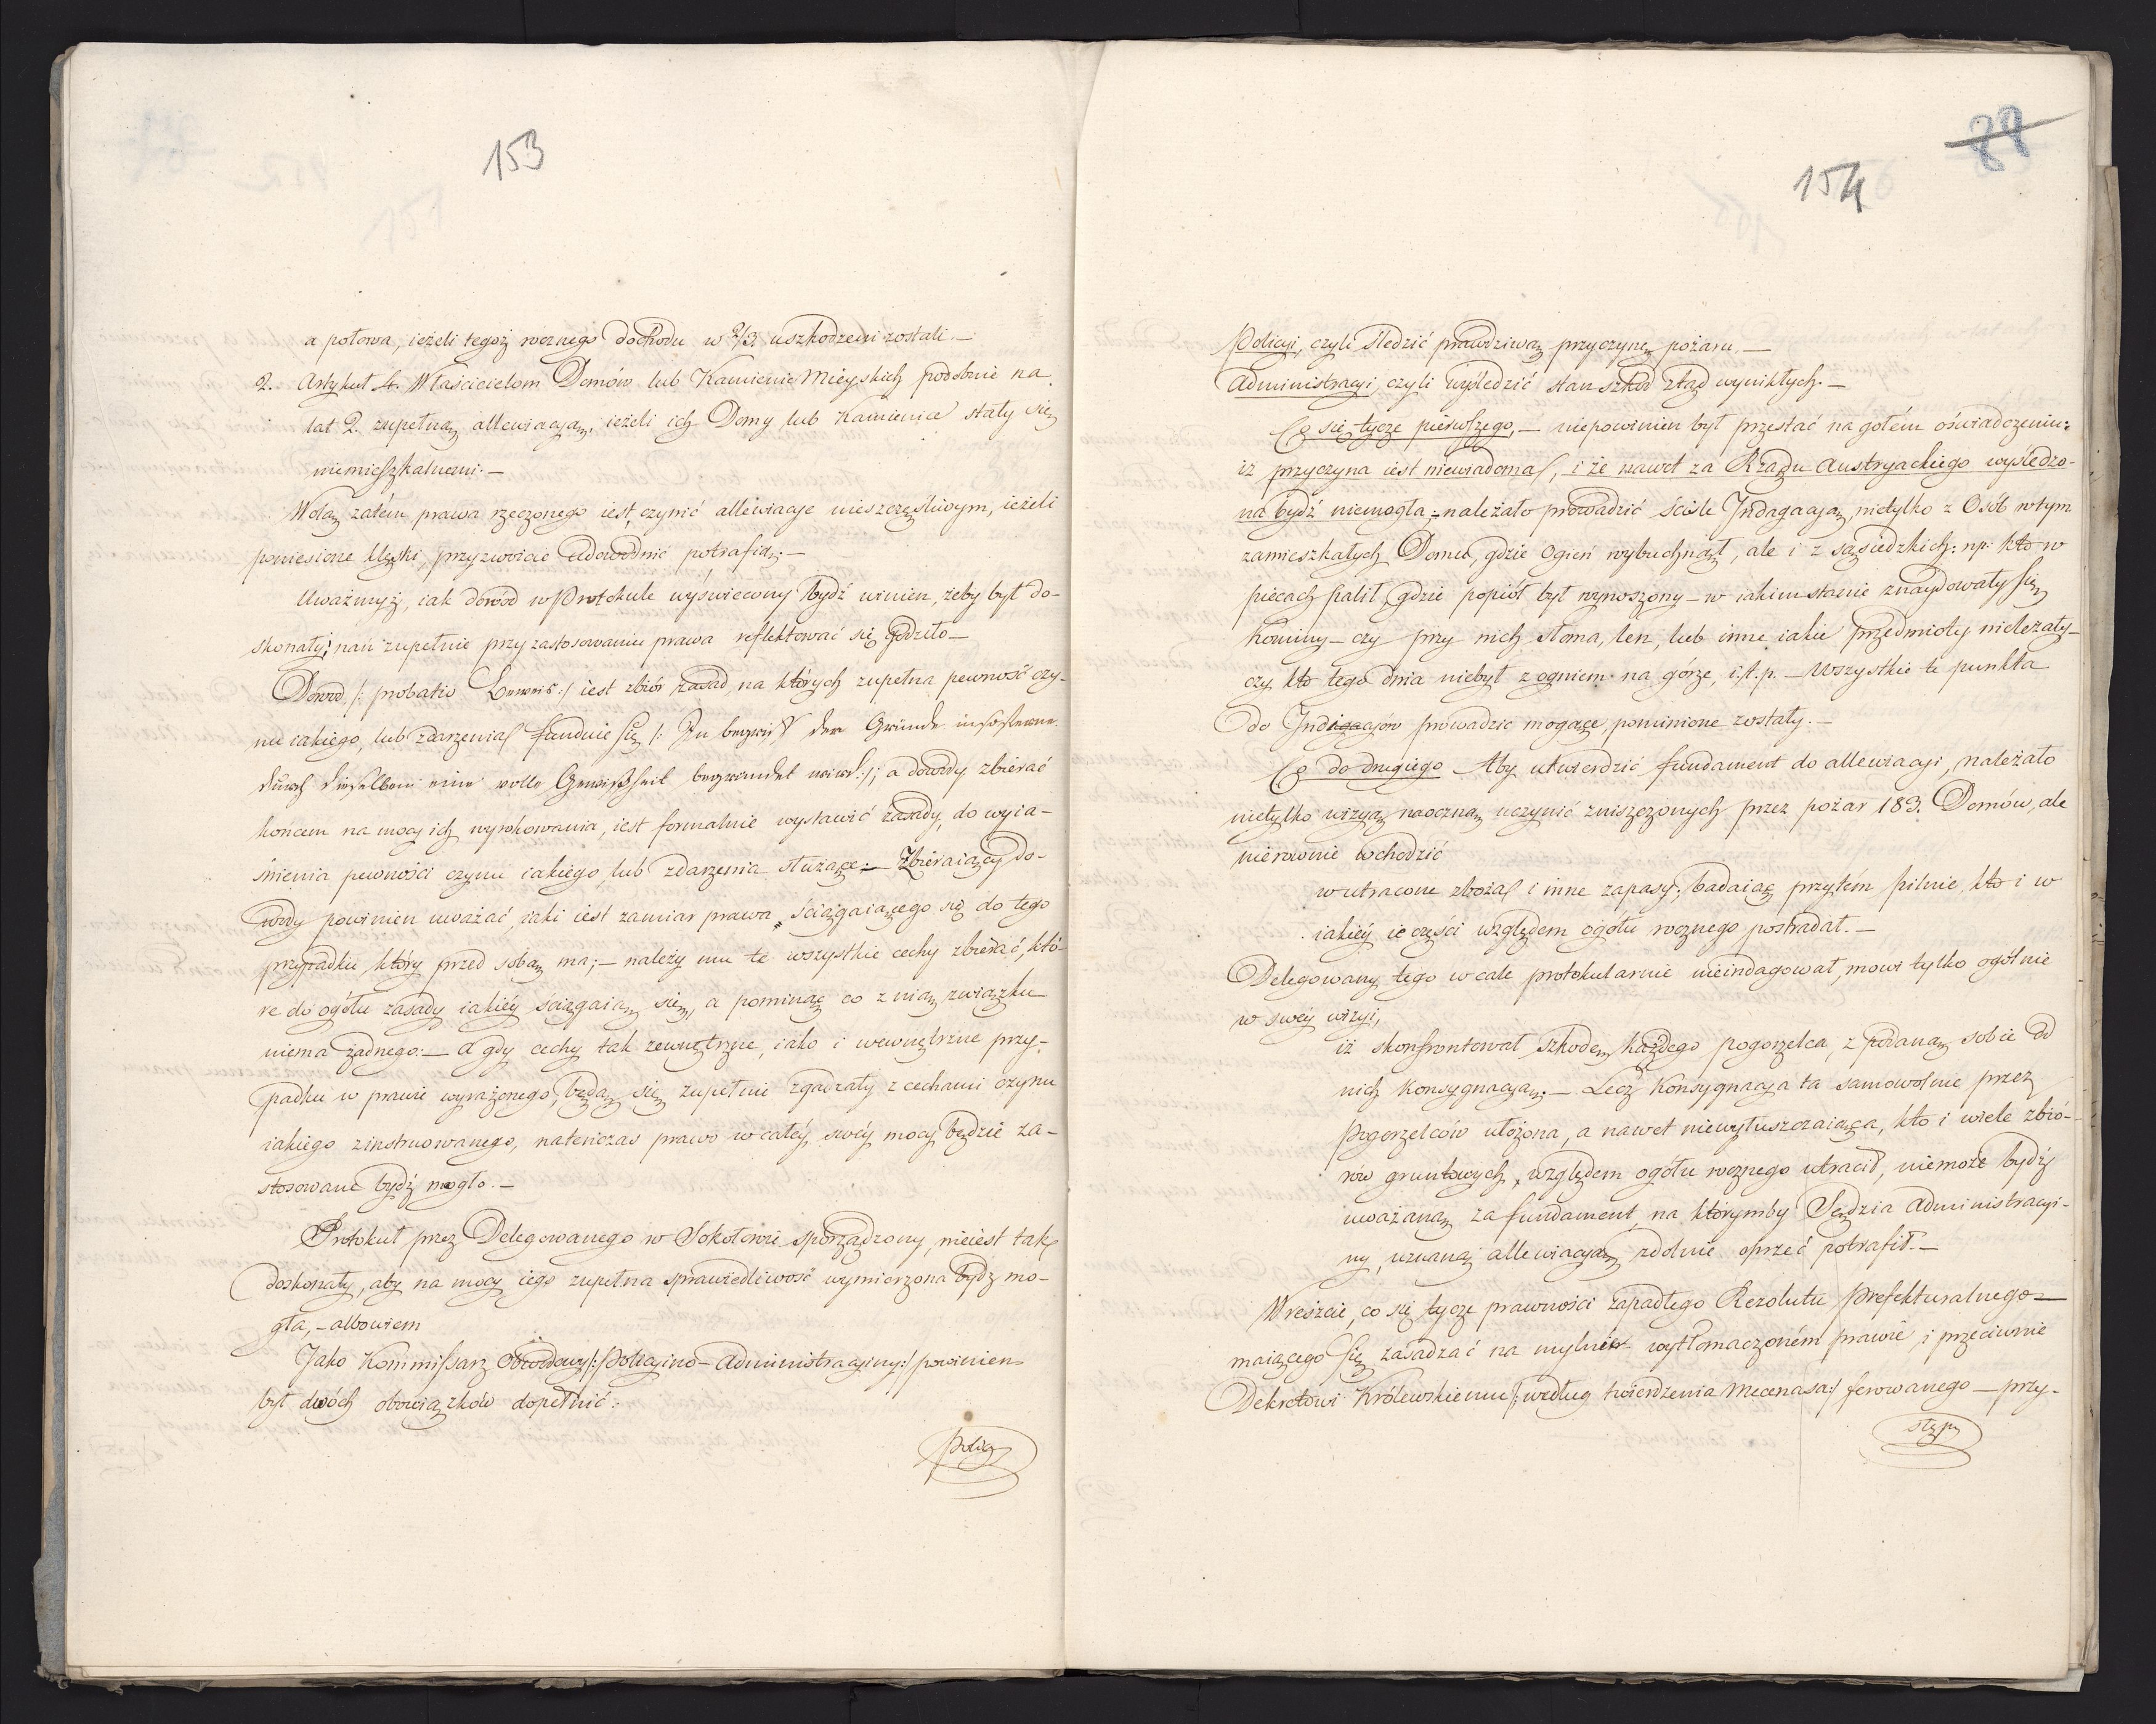 153
a połowa, ieżeli tegoż rocznego dochodu w 2/3 uszkodzeni zostali. —
2. Artykuł 4. Właścicielom Domów lub Kamienic Mieyskich podobnie na
lat 2. zupełną allewiacyą, ieżeli ich Domy lub Kamienice stały się
niemieszkalnemi. —
Wolą zatém prawa rzeczonego iest, czynić allewiacye nieszczęśliwym, ieżeli
poniesione klęski, przyzwoicie udowodnić potrafią. —
Uważmyż, iak dowód w Protokule wyświecony bydź winien, żeby był do-
skonały; nań zupełnie przy zastosowaniu prawa reflektować się godziło —
Dowód /: probatio Beweis :/ iest zbiór zasad na których zupełna pewność czy-
nu iakiego, lub zdarzenia funduie się /: In begriff der Gründe insofern
durch dieselben eine volle Gewißheit begründet wird :/; a dowody zbierać
końcem na mocy ich wyrokowania, iest formalnie wystawić zasady, do wyia-
śnienia pewności czynu iakiego, lub zdarzenia służące: — Zbieraiący do-
wody powinien uważać, iaki iest zamiar prawa, ściągaiącego się do tego
przypadku, który przed sobą ma; — należy mu te wszystkie cechy zbierać, któ-
re do ogółu zasady iakiéy sciągaią się, a pominąć co z nią związku
niema żadnego: — A gdy cechy tak zewnętrzne, iako i wewnętrzne przy-
padku w prawie wyrażonego, będą się zupełnie zgadzały z cechami czynu
iakiego zinstruowanego, natenczas prawo w całéy swéy mocy będzie za-
stosowane bydź mogło. —
Protokuł przez Delegowanego w Sokołowie sporządzony, nieiest tak
doskonały, aby na mocy iego zupełna sprawiedliwość wymierzona bydź mo-
gła, — albowiem
Jako Kommissarz Obwodowy /: Policyino-Administracyiny :/ powinien
był dwóch obowiązków dopełnić:
Policy
88
154
Policyi, czyli śledzić prawdziwą przyczynę pożaru. —
Administracyi, czyli wyśledzić stan szkód ztąd wynikłych. —
Co się tycze pierwszego, — niepowinien był przestać na gołém oświadczeniu:
iż przyczyna iest niewiadoma, i że nawet za Rządu Austryackiego wyśledzo-
na bydź niemogła; — należało prowadzić ścisłe Indagacyą, nietylko z Osób w tym
zamieszkałych Domu, gdzie Ogień wybuchnął, ale i z sąsiedzkich: np: kto w
piecach palił, gdzie popiół był wynoszony — w iakim stanie znaydowały się
Kominy — czy przy nich słoma, len, lub inne iakie przedmioty nieleżały —
czy kto tego dnia niebył z ogniem na górze, i. t. p. — Wszystkie te punkta
do Indagacyów prowadzić mogące, pominione zostały. —
Co do drugiego Aby utwierdzić fundament do allewiacyi, należało
nietylko wizyą naoczną uczynić zniszczonych przez pożar 183. Domów, ale
nierownie wchodzić
w utracone zboża i inne zapasy; badaiąc przytém pilnie, kto i w
iakiéy ie części względem ogółu rocznego postradał. —
Delegowany tego wcale protokularnie nieindagował, mowi tylko ogólnie
w swéy wizyi,
iż skonfrontował szkodę każdego pogorzelca, z podaną sobie od
nich Konsygnacyą. — Lecz Konsygnacya ta samowolnie przez
Pogorzelców ułożona, a nawet niewyłuszczaiąca, kto i wiele zbio-
rów gruntowych, względem ogółu rocznego utracił, niemoże bydź
uważaną za fundament, na którymby Sędzia Administracyi-
ny, uznaną allewiacyą zdolnie oprzeć potrafił. —
Wreszcie, co się tycze prawności zapadłego Rezolutu Prefekturalnego —
maiącego się zasadzać na mylnie wytłomaczoném prawie, i przeciwnie
Dekretowi Królewskiemu /: według twierdzenia Mecenasa :/ ferowanego — przy-
stęp